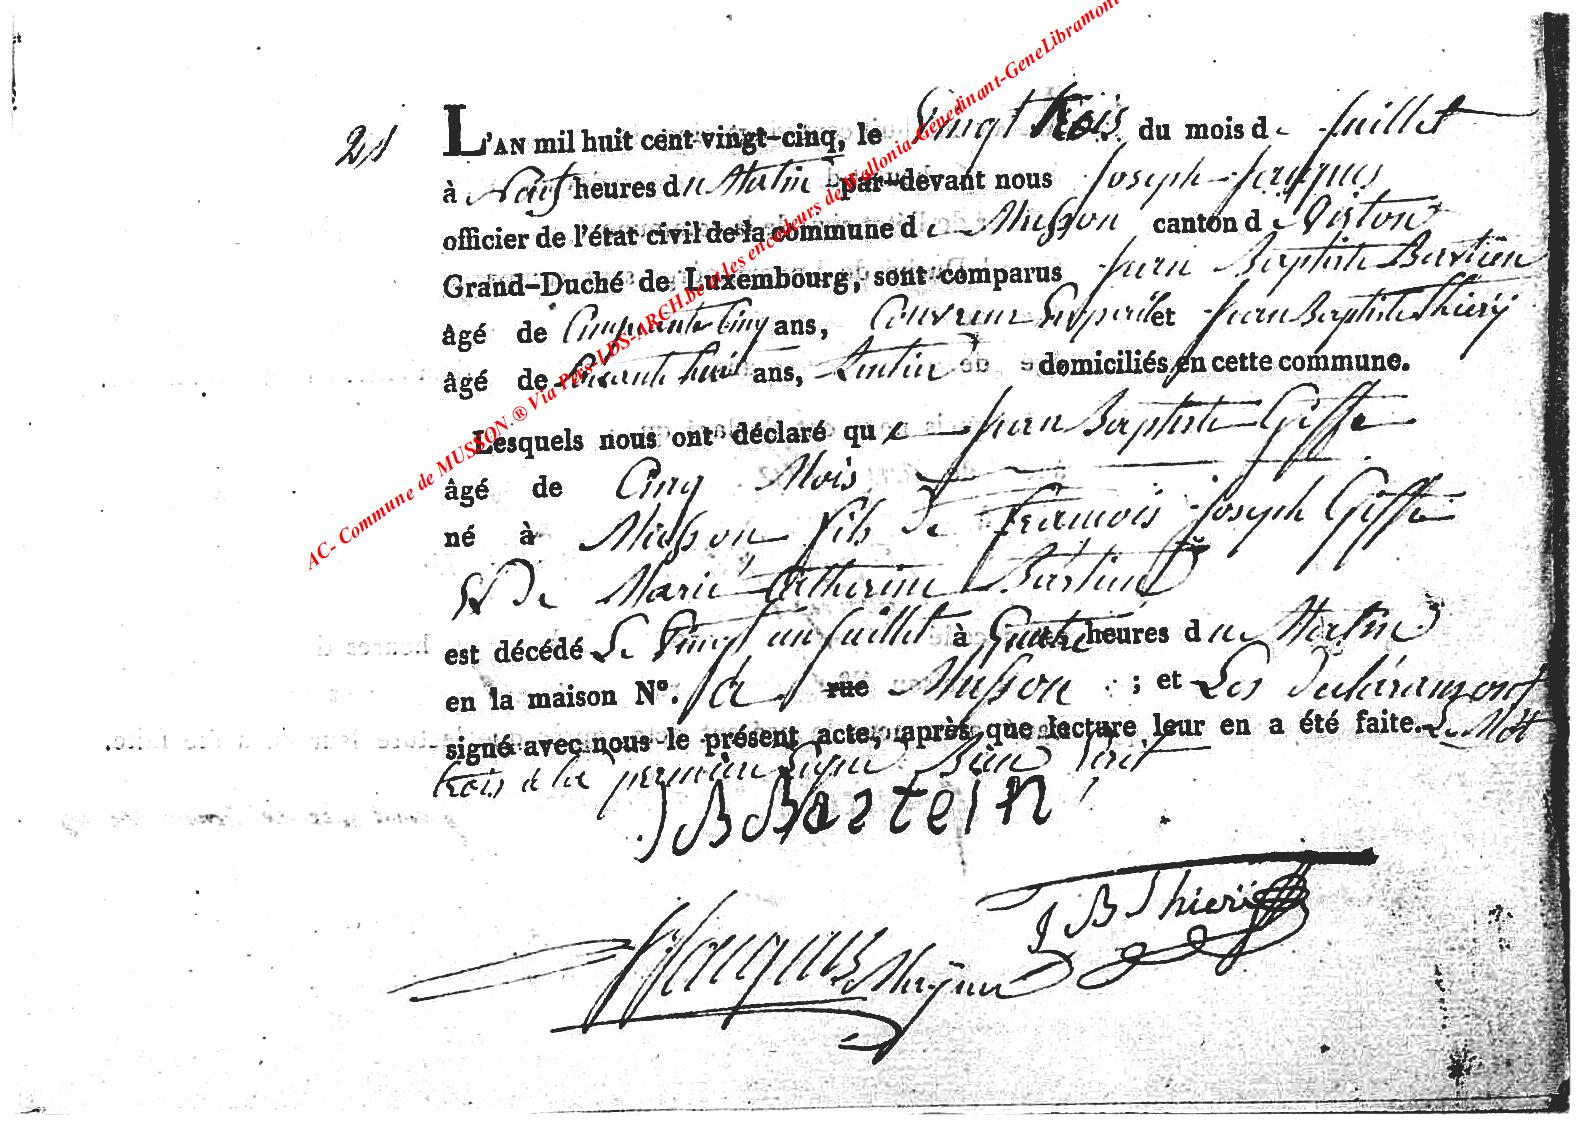 21 L'AN mil huit cent vingt-cinq, le Vingt trois du mois de Juillet
à Neuf heures du Matin par-devant nous Joseph Jacques
officier de l'état civil de la commune de Musson canton de Virton
Grand-Duché de Luxembourg, sont comparus Jean Baptiste Bastien
âgé de Cinquante Cinq ans, Couvreur En paille et Jean Baptiste Thiery
âgé de huit ans, domiciliés en cette commune.
Lesquels nous ont déclaré que Jean Baptiste Giffe
âgé de Cinq Mois
né à Musson fils de Francois Joseph Giffe
Et De Marie Catherine Bastien
est décédé Le Vingt un Juillet à Quatre heures du Matin
en la maison N°. à rue Musson ; et Les declarans ont
signé avec nous le présent acte, après que lecture leur en a été faite. Le Mot
trois à la premiere Ligne Bien Ecrit
J B Bastein
J B Thieri
J Jacques Mayeur
AC- Commune de MUSSON ® Via Pers-LDS-ARCH.be et les encodeurs de Wallonia-Genedinant-GeneLibramont